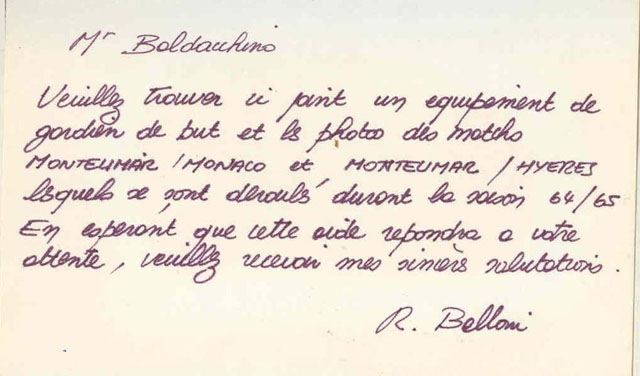 Mr Baldacchino
Veuillez trouver ci joint un equipement de
gardien de but et les photos des matchs
MONTELIMAR / MONACO et MONTELIMAR / HYERES
lesquels se sont déroulés durant la saison 64/65
En esperant que cette aide repondra a votre
attente, veuillez recevoir mes sincères salutations.
R. Belloni